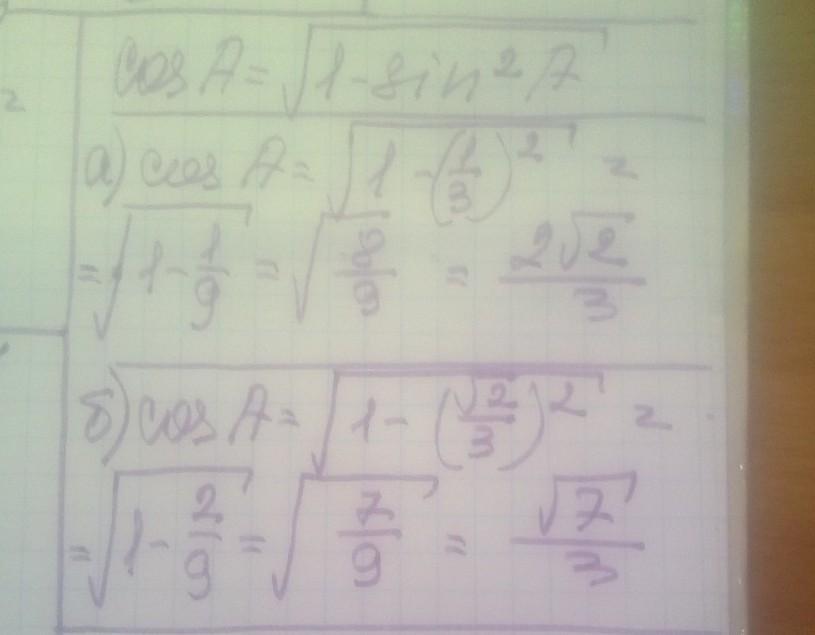 cos A = √(1 - sin² A)
а) cos A = √(1 - (1/3)²) =
= √(1 - 1/9) = √(8/9) = 2√2/3
б) cos A = √(1 - (√2/3)²) =
= √(1 - 2/9) = √(7/9) = √7/3